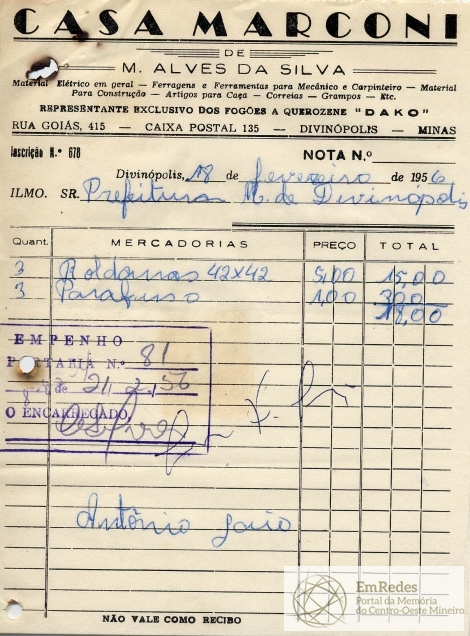 CASA MARCONI
DE
M. ALVES DA SILVA
Material Elétrico em geral — Ferragens e Ferramentas para Mecânico e Carpinteiro — Material
Para Construção — Artigos para Caça — Correias — Grampos — Etc.
REPRESENTANTE EXCLUSIVO DOS FOGÕES A QUEROZENE "DAKO"
RUA GOIÁS, 415 — CAIXA POSTAL 135 — DIVINÓPOLIS — MINAS
Inscrição N.º 678 NOTA N.º
Divinópolis, 18 de fevereiro de 1956
ILMO. SR. Prefeitura M. de Divinópolis
Quant. MERCADORIAS PREÇO TOTAL
3 Roldanas 42x42 5,00 15,00
3 Parafuso 1,00 3,00
18,00
EMPENHO
PORTARIA N.º 81
de 21/2/56
O ENCARREGADO,
Antônio
NÃO VALE COMO RECIBO
EmRedes
Portal da Memória
do Centro-Oeste Mineiro